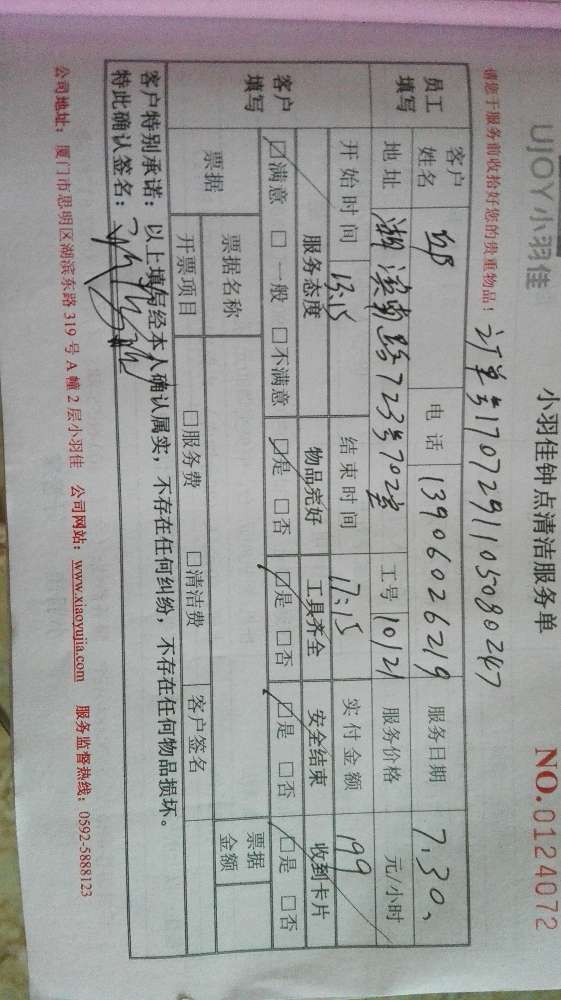 UJOY小羽佳
小羽佳钟点清洁服务单
NO.0124072
请您于服务前收拾好您的贵重物品!
订单号1707291105080247
员工填写
客户姓名
电话 13906026219
服务日期 7.30、
地址 湖滨南路723号702室
工号 10121
服务价格 元/小时
开始时间 13:15
结束时间 17:15
实付金额 199
客户填写
服务态度 物品完好 工具齐全 安全结束 收到卡片
☑满意 □一般 □不满意 ☑是 □否 ☑是 □否 ☑是 □否 ☑是 □否
票据
票据名称
客户签名
票据金额
开票项目 □服务费 □清洁费
客户特别承诺:以上填写经本人确认属实,不存在任何纠纷,不存在任何物品损坏。
特此确认签名:
公司地址:厦门市思明区湖滨东路319号A幢2层小羽佳 公司网站:www.xiaoyujia.com 服务监督热线:0592-5888123